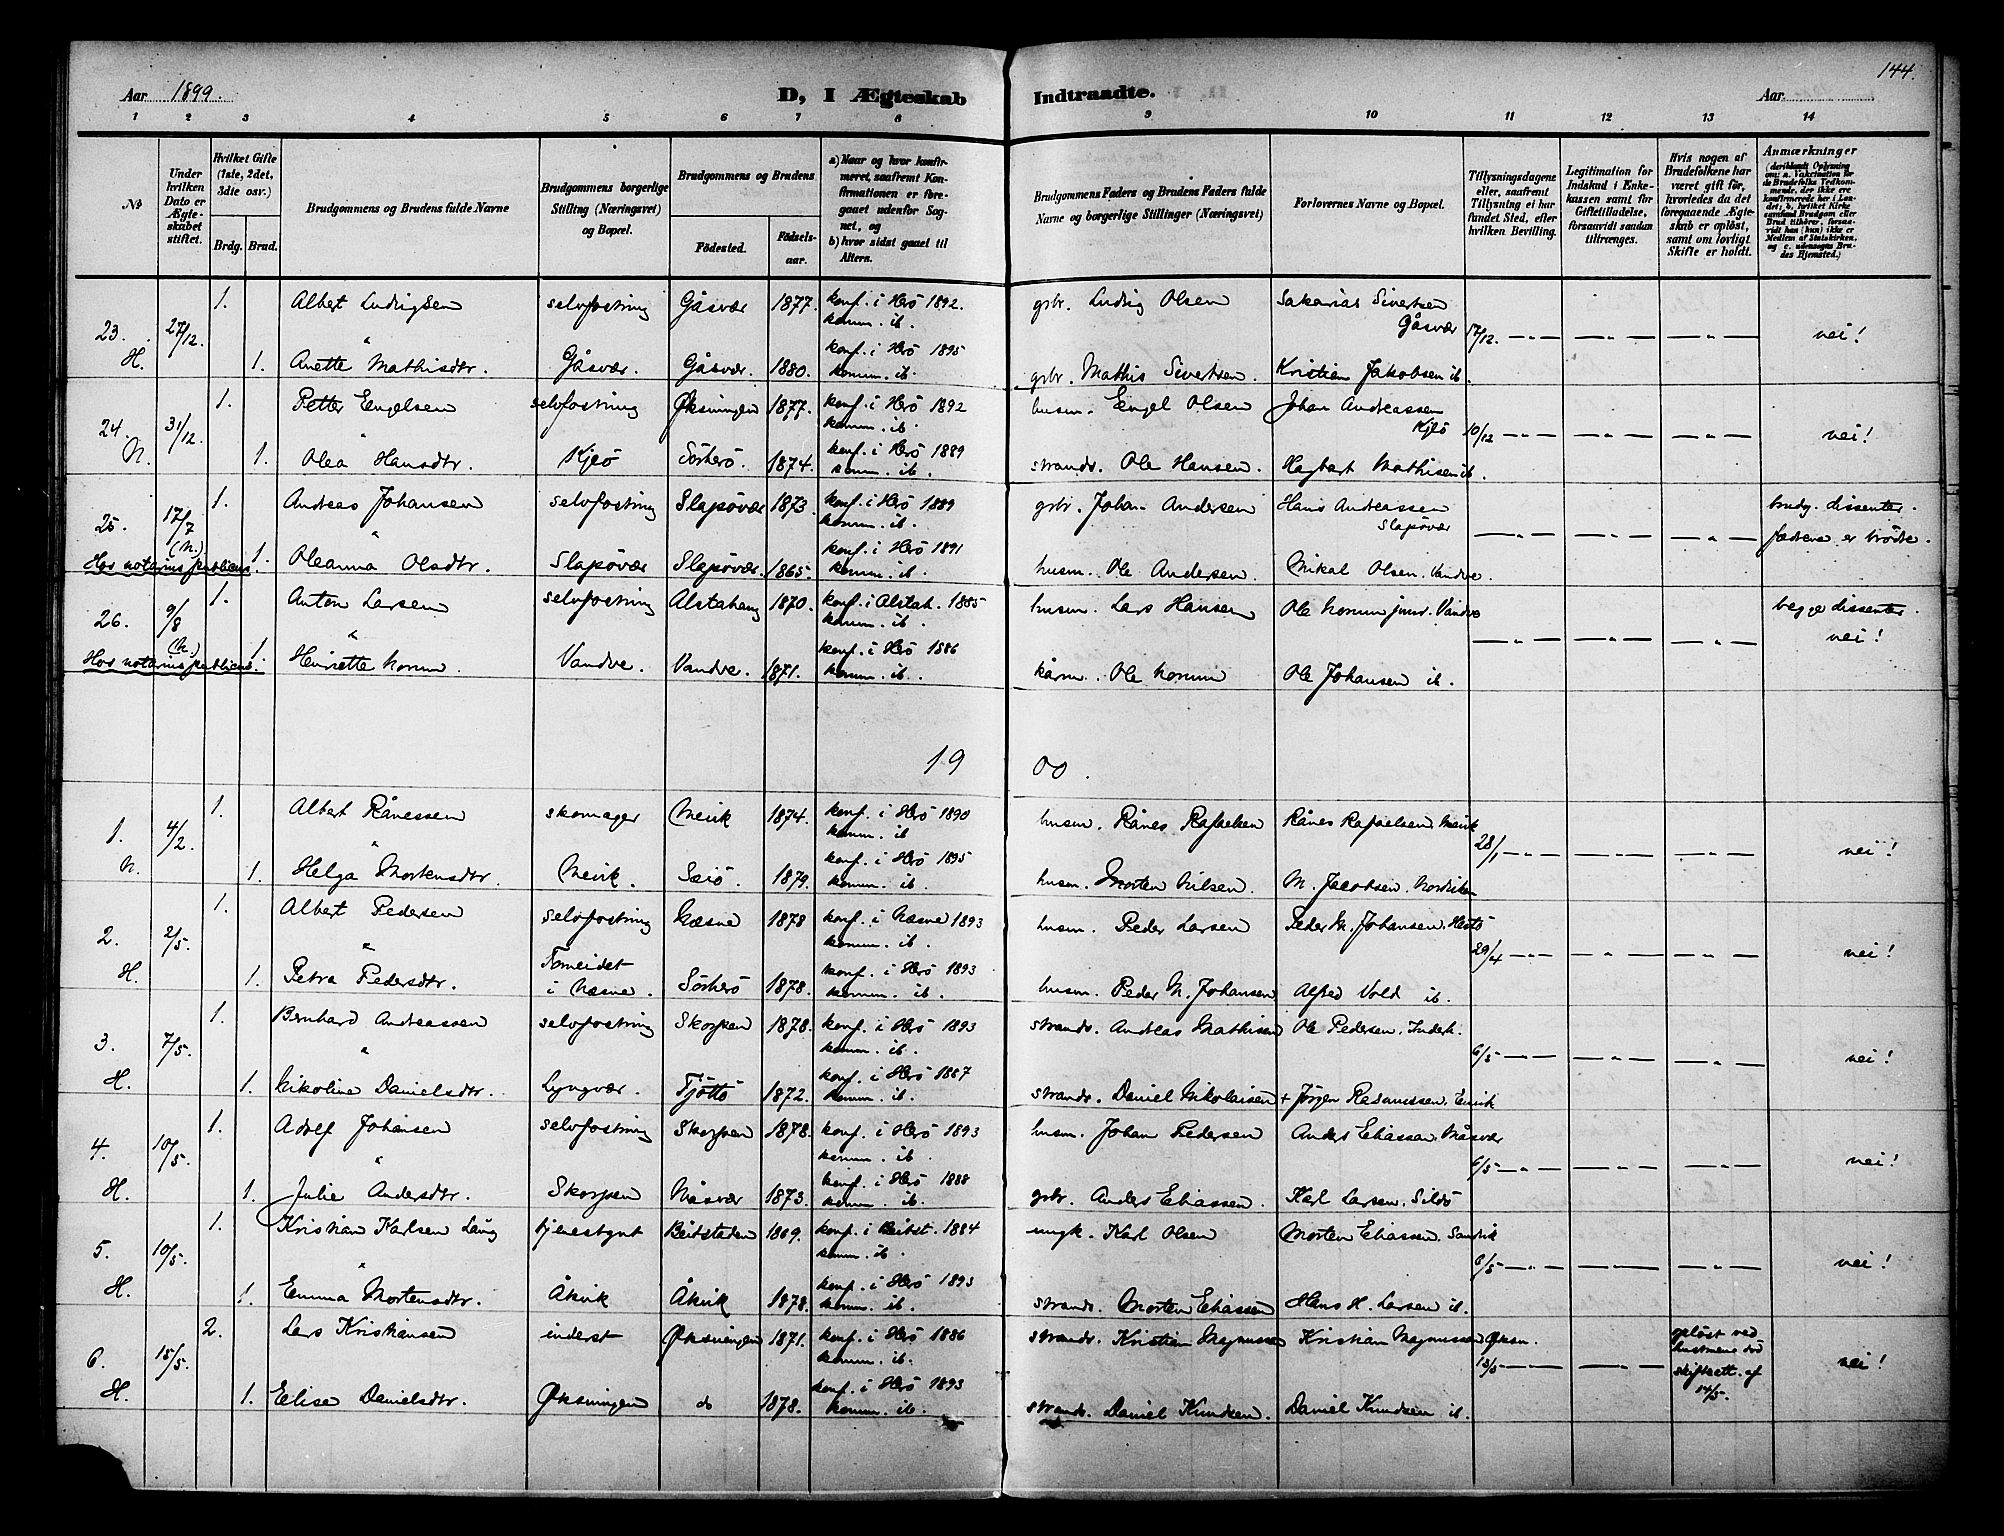 144.
Aar 1899. D, I Ægteskab Indtraadte. Aar
1 2 3 4 5 6 7 8 9 10 11 12 13 14
No
Under hvilken Dato er Ægteskabet stiftet.
Hvilket Gifte (1ste, 2det, 3die osv.)
Brdg. Brud.
Brudgommens og Brudens fulde Navne
Brudgommens borgerlige Stilling (Næringsvei) og Bopæl.
Brudgommens og Brudens
Fødested. Fødselsaar.
a) Naar og hvor konfirmeret, saafremt Konfirmationen er foregaaet udenfor Sognet, og
b) hvor sidst gaaet til Alters.
Brudgommens Faders og Brudens Faders fulde Navne og borgerlige Stillinger (Næringsvei)
Forlovernes Navne og Bopæl.
Tillysningsdagene eller, saafremt Tillysning ei har fundet Sted, efter hvilken Bevilling.
Legitimation for Indskud i Enkekassen samt for Giftetilladelse, forsaavidt saadan tiltrænges.
Hvis nogen af Brudefolkene har været gift før, hvorledes da det foregaaende Ægteskab er opløst, samt om lovligt Skifte er holdt.
Anmærkninger
23. 27/12 1. Albert Ludvigsen selvfostring Gåsvær 1877. konf. i Herö 1892. komm. ib. grbr. Ludvig Olsen Sakarias Sivertsen Gåsvær 17/12. nei!
H. 1. Anette Mathisdtr. Gåsvær. Gåsvær. 1880. konf. i Herö 1895 komm. ib. grbr. Mathis Sivertsen. Kristian Jakobsen ib.
24. 31/12. 1. Petter Engelsen selvfostring Øksningen 1877. konf. i Herö 1892 komm. ib. husm. Engel Olsen Johan Andreassen Kjlö 10/12 nei!
N. 1. Olea Hansdtr. Kjlö Sörherö. 1874. konf. i Herö 1889 komm. ib. strands. Ole Hansen. Hagbart Mathisen ib.
25. 17/7 (N.) 1. Andreas Johansen selvfostring Slapövær 1873. konf. i Herö 1889 komm. ib. grbr. Johan Andersen Hans Andreassen Slapövær brudg. dissenter.
Hos notarius publicus. 1. Oleanna Olsdtr. Slapövær Slapövær. 1865. konf. i Herö 1891 komm. ib. husm. Ole Andersen. Mikal Olsen. Vandve. fædrene er brödre.
26. 9/8 (N.) 1. Anton Larsen selvfostring Alstahaug 1870. konf. i Alstah. 1885 komm. ib. husm. Lars Hansen Ole Komm junr. Vandve begge dissenter. nei!
Hos notarius publicus. 1. Henriette Komm. Vandve. Vandve. 1871. konf. i Herö 1886 komm. ib. kårm. Ole Komm Ole Johansen ib.
19 00.
1. 4/2 1. Albert Rånessen skomager Meivik 1874. konf. i Herö 1890 komm. ib husm. Rånes Rafaelsen Rånes Rafaelsen. 28/1 nei!
N. 1. Helga Mortensdtr. Sæiö. 1879. konf. i Herö 1895 komm. ib. husm. Morten Nilsen. M. Jacobsen.
2. 2/5. 1. Albert Pedersen selvfostring Næsne 1878 konf. i Næsne 1893 komm. ib. husm. Peder Larsen Peder M. Johansen. Hestö 29/4 nei!
H. 1. Petra Pedersdtr. i Næsne. Sörherö 1878. konf. i Herö 1893 komm. ib. husm. Peder M. Johansen Alfred Vold ib.
3. 7/5. 1. Bernhard Andreassen selvfostring Skorpen 1878. konf. i Herö 1893 komm. ib. strands. Andreas Mathisen Ole Pedersen. Inderh. 6/5 nei!
H. 1. Nikoline Danielsdtr. Lyngvær. Tjöttö 1872. konf. i Herö 1887 komm. ib. strands. Daniel Nikolaisen + Jörgen Rasmussen.
4. 10/5. 1. Adolf Johansen selvfostring Skorpen 1878. konf. i Herö 1893 komm. ib. husm. Johan Pedersen Anders Eliassen. Måsvær 6/5 nei!
H. 1. Julie Andersdtr. Skorpen Måsvær 1873. konf. i Herö 1888 komm. ib. grbr. Anders Eliassen. Karl Larsen. Sildö
5. 10/5. 1. Kristian Karlsen tjenestgut Beitstaden 1869. konf. i Beitst. 1884 komm. ib. ungk. Karl Olsen Morten Eliassen. Sandvik 6/5 nei!
H. 1. Emma Mortensdtr. Åkvik Åkvik 1878. konf. i Herö 1893 komm. ib. strands. Morten Eliassen Hans H. Larsen ib.
6. 15/5. 2. Lars Kristiansen inderst Øksningen 1871. konf. i Herö 1886 komm. ib. strands. Kristian Magnussen Kristian Magnussen Øksn. 13/5 oplöst ved hustruens död skifteatt. af 14/5. nei!
H. 1. Elise Danielsdtr. Øksningen do 1878. konf. i Herö 1893 komm. ib. strands. Daniel Knudsen. Daniel Knudsen ib.